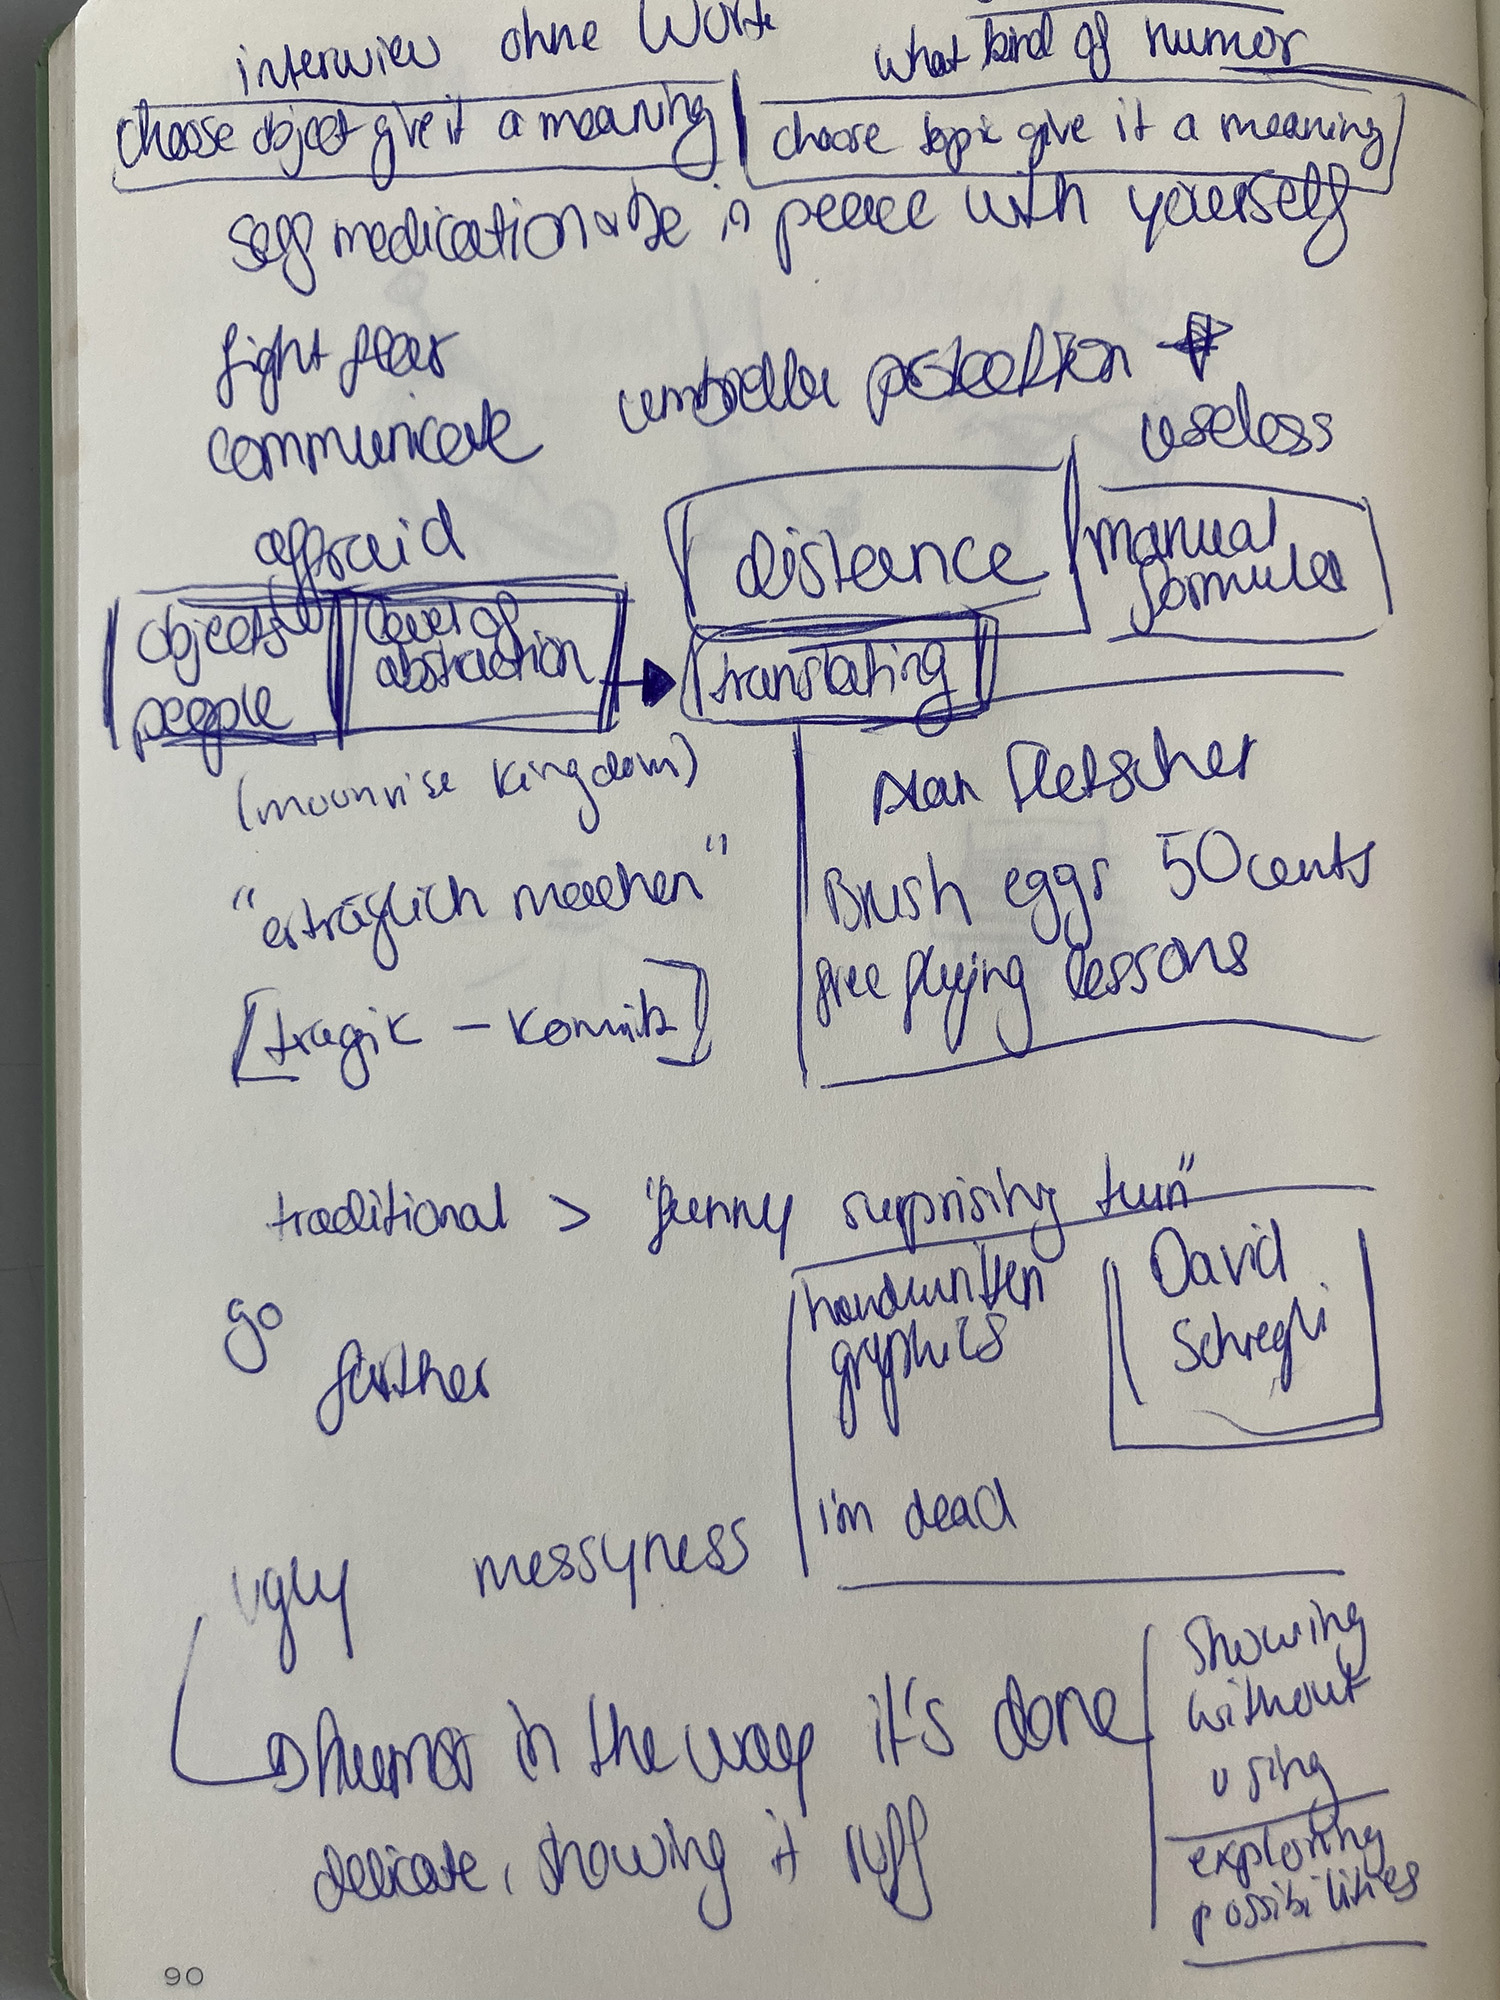 interview ohne Worte
what kind of humor
choose object give it a meaning
choose topic give it a meaning
self medication be in peace with yourself
fight fear
umbrella protection
communicate
useless
affraid
distance
manual
formula
objects
people
level of
abstraction
translating
(moonrise kingdom)
Alan Fletscher
"erträglich machen"
Brush eggs 50 cents
free flying lessons
[tragik – Komik]
traditional > "funny surprising turn"
handwritten
gryphics
David
Schregli
go
further
i'm dead
ugly messyness
humor in the way it's done
delicate, showing it ruff
showing
without
using
exploring
possibilities
90